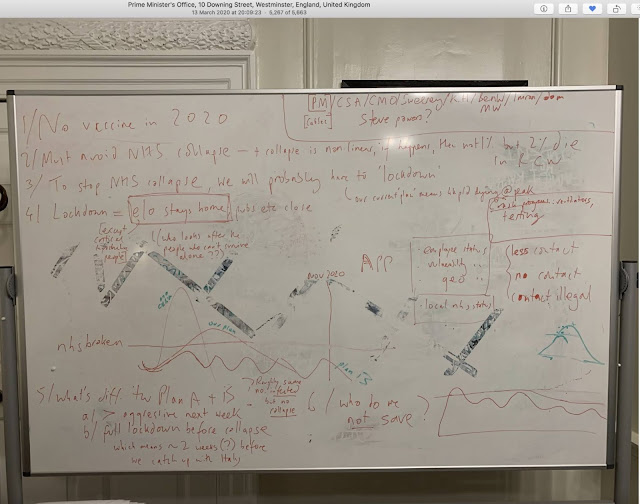 Prime Minister's Office, 10 Downing Street, Westminster, England, United Kingdom
13 March 2020 at 20:09:23 - 5,267 of 5,663
PM/CSA/CMO/
MW
Steve powers?
1/ No vaccine in 2020
2/ Must avoid NHS collapse - + collapse is non linear, if happens, then not 1% but 2% die
3/ To stop NHS collapse, we will probably have to 'lockdown'
our current plan means ppl dying @ peak
4/ Lockdown = e/o stays home, pubs etc close
(except
people)
(who looks after the
people who can't survive
alone ??)
testing
APP
employee status
vulnerability
geo
local nhs status
less contact
no contact
contact illegal
Nov 2020
our plan
nhs broken
plan
5/ what's diff. Plan A +
a/ > aggressive next week
b/ full lockdown before collapse
which means ~ 2 weeks (?) before
we catch up with Italy
Roughly same
no. infected
but no
collapse
6/ who do we
not save?